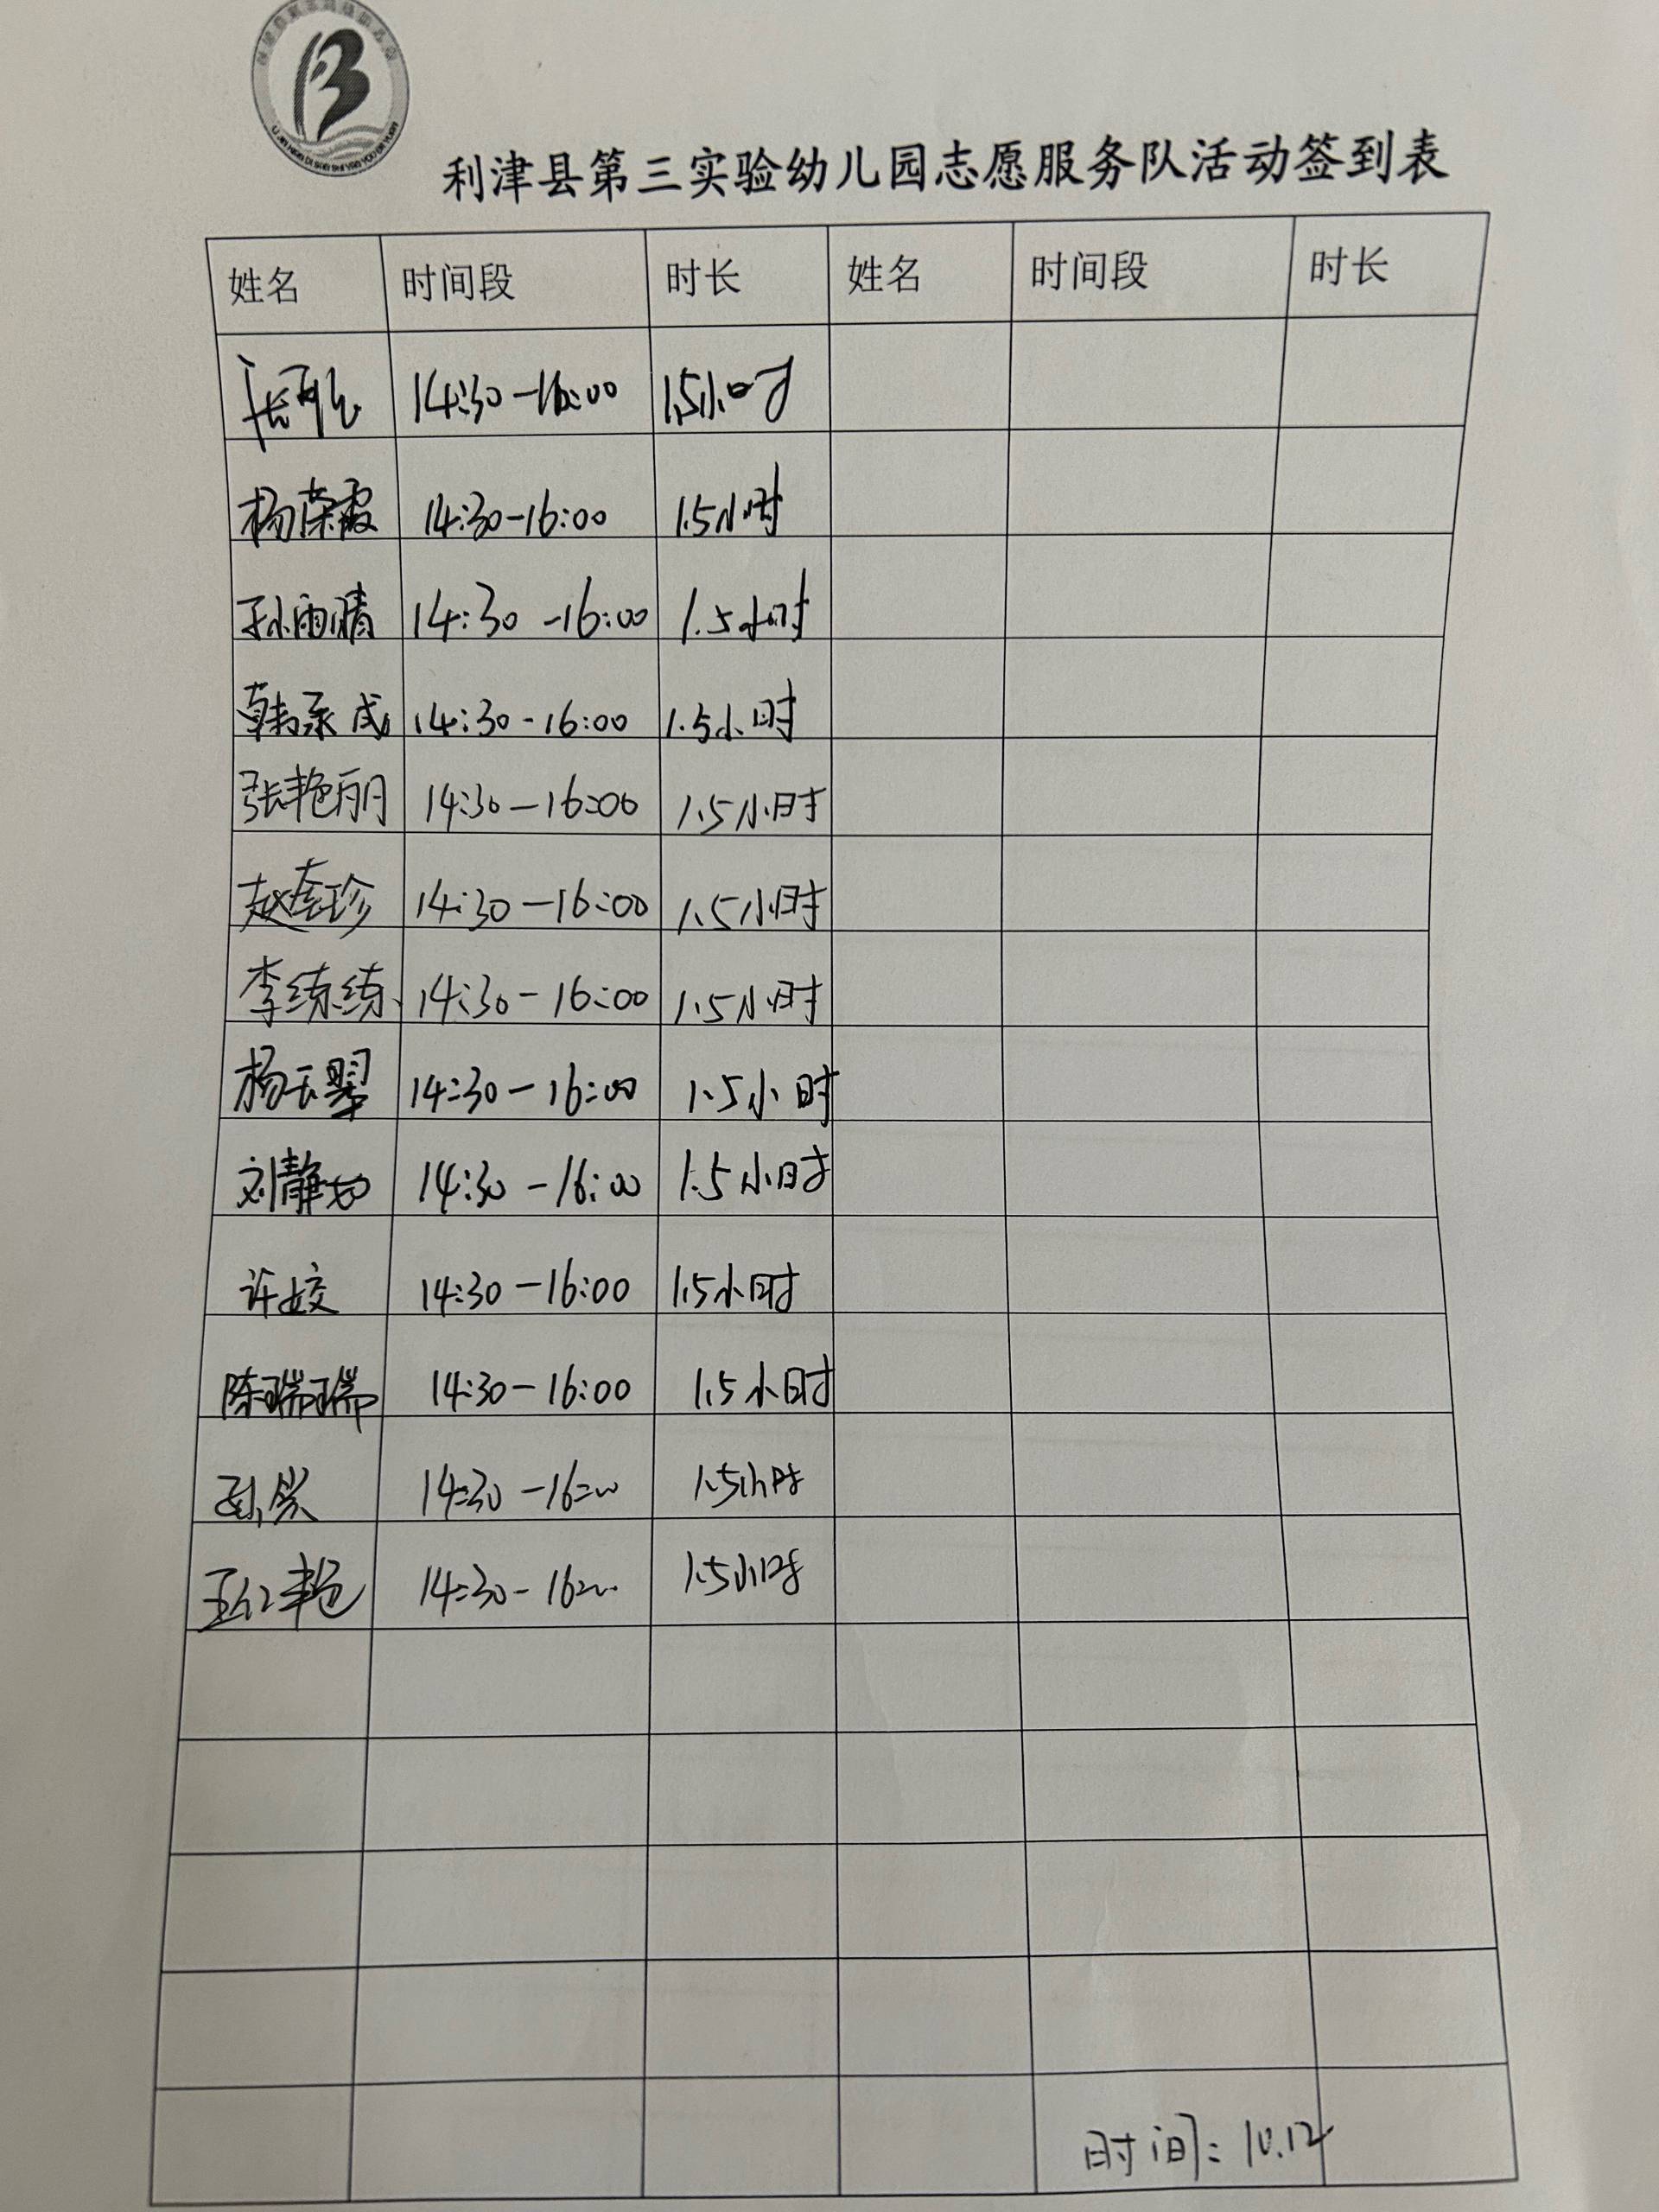 利津县第三实验幼儿园志愿服务队活动签到表
姓名 时间段 时长 姓名 时间段 时长
14:30-16:00 1.5小时
杨荣霞 14:30-16:00 1.5小时
孙雨晴 14:30-16:00 1.5小时
韩承成 14:30-16:00 1.5小时
张艳丽 14:30-16:00 1.5小时
赵春珍 14:30-16:00 1.5小时
李练练 14:30-16:00 1.5小时
杨玉翠 14:30-16:00 1.5小时
刘静 14:30-16:00 1.5小时
许姣 14:30-16:00 1.5小时
陈瑞瑞 14:30-16:00 1.5小时
14:30-16:00 1.5小时
王红艳 14:30-16:00 1.5小时
时间:10.12